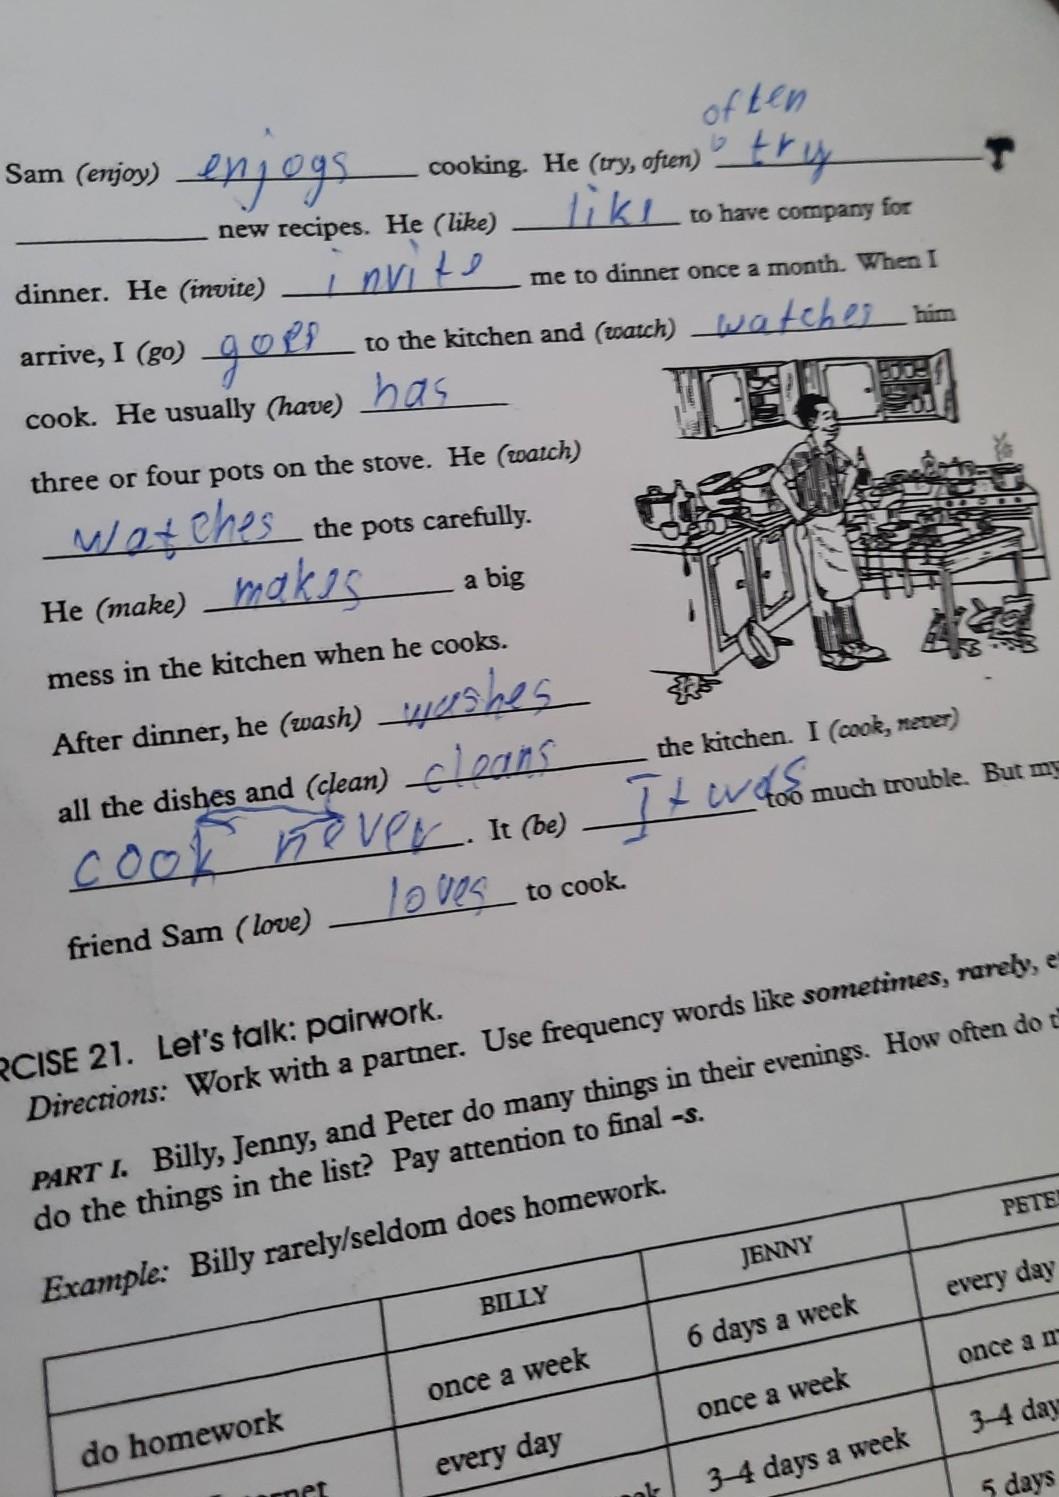 often
Sam (enjoy) enjogs cooking. He (try, often) try
new recipes. He (like) like to have company for
dinner. He (invite) invite me to dinner once a month. When I
arrive, I (go) goes to the kitchen and (watch) watches him
cook. He usually (have) has
three or four pots on the stove. He (watch)
watches the pots carefully.
He (make) makes a big
mess in the kitchen when he cooks.
After dinner, he (wash) washes
all the dishes and (clean) cleans the kitchen. I (cook, never)
cook never. It (be) It was too much trouble. But my
friend Sam (love) loves to cook.
RCISE 21. Let's talk: pairwork.
Directions: Work with a partner. Use frequency words like sometimes, rarely, e
PART I. Billy, Jenny, and Peter do many things in their evenings. How often do t
do the things in the list? Pay attention to final -s.
Example: Billy rarely/seldom does homework.
BILLY JENNY PETE
do homework once a week 6 days a week every day
every day once a week once a m
3-4 days a week 3-4 day
5 days